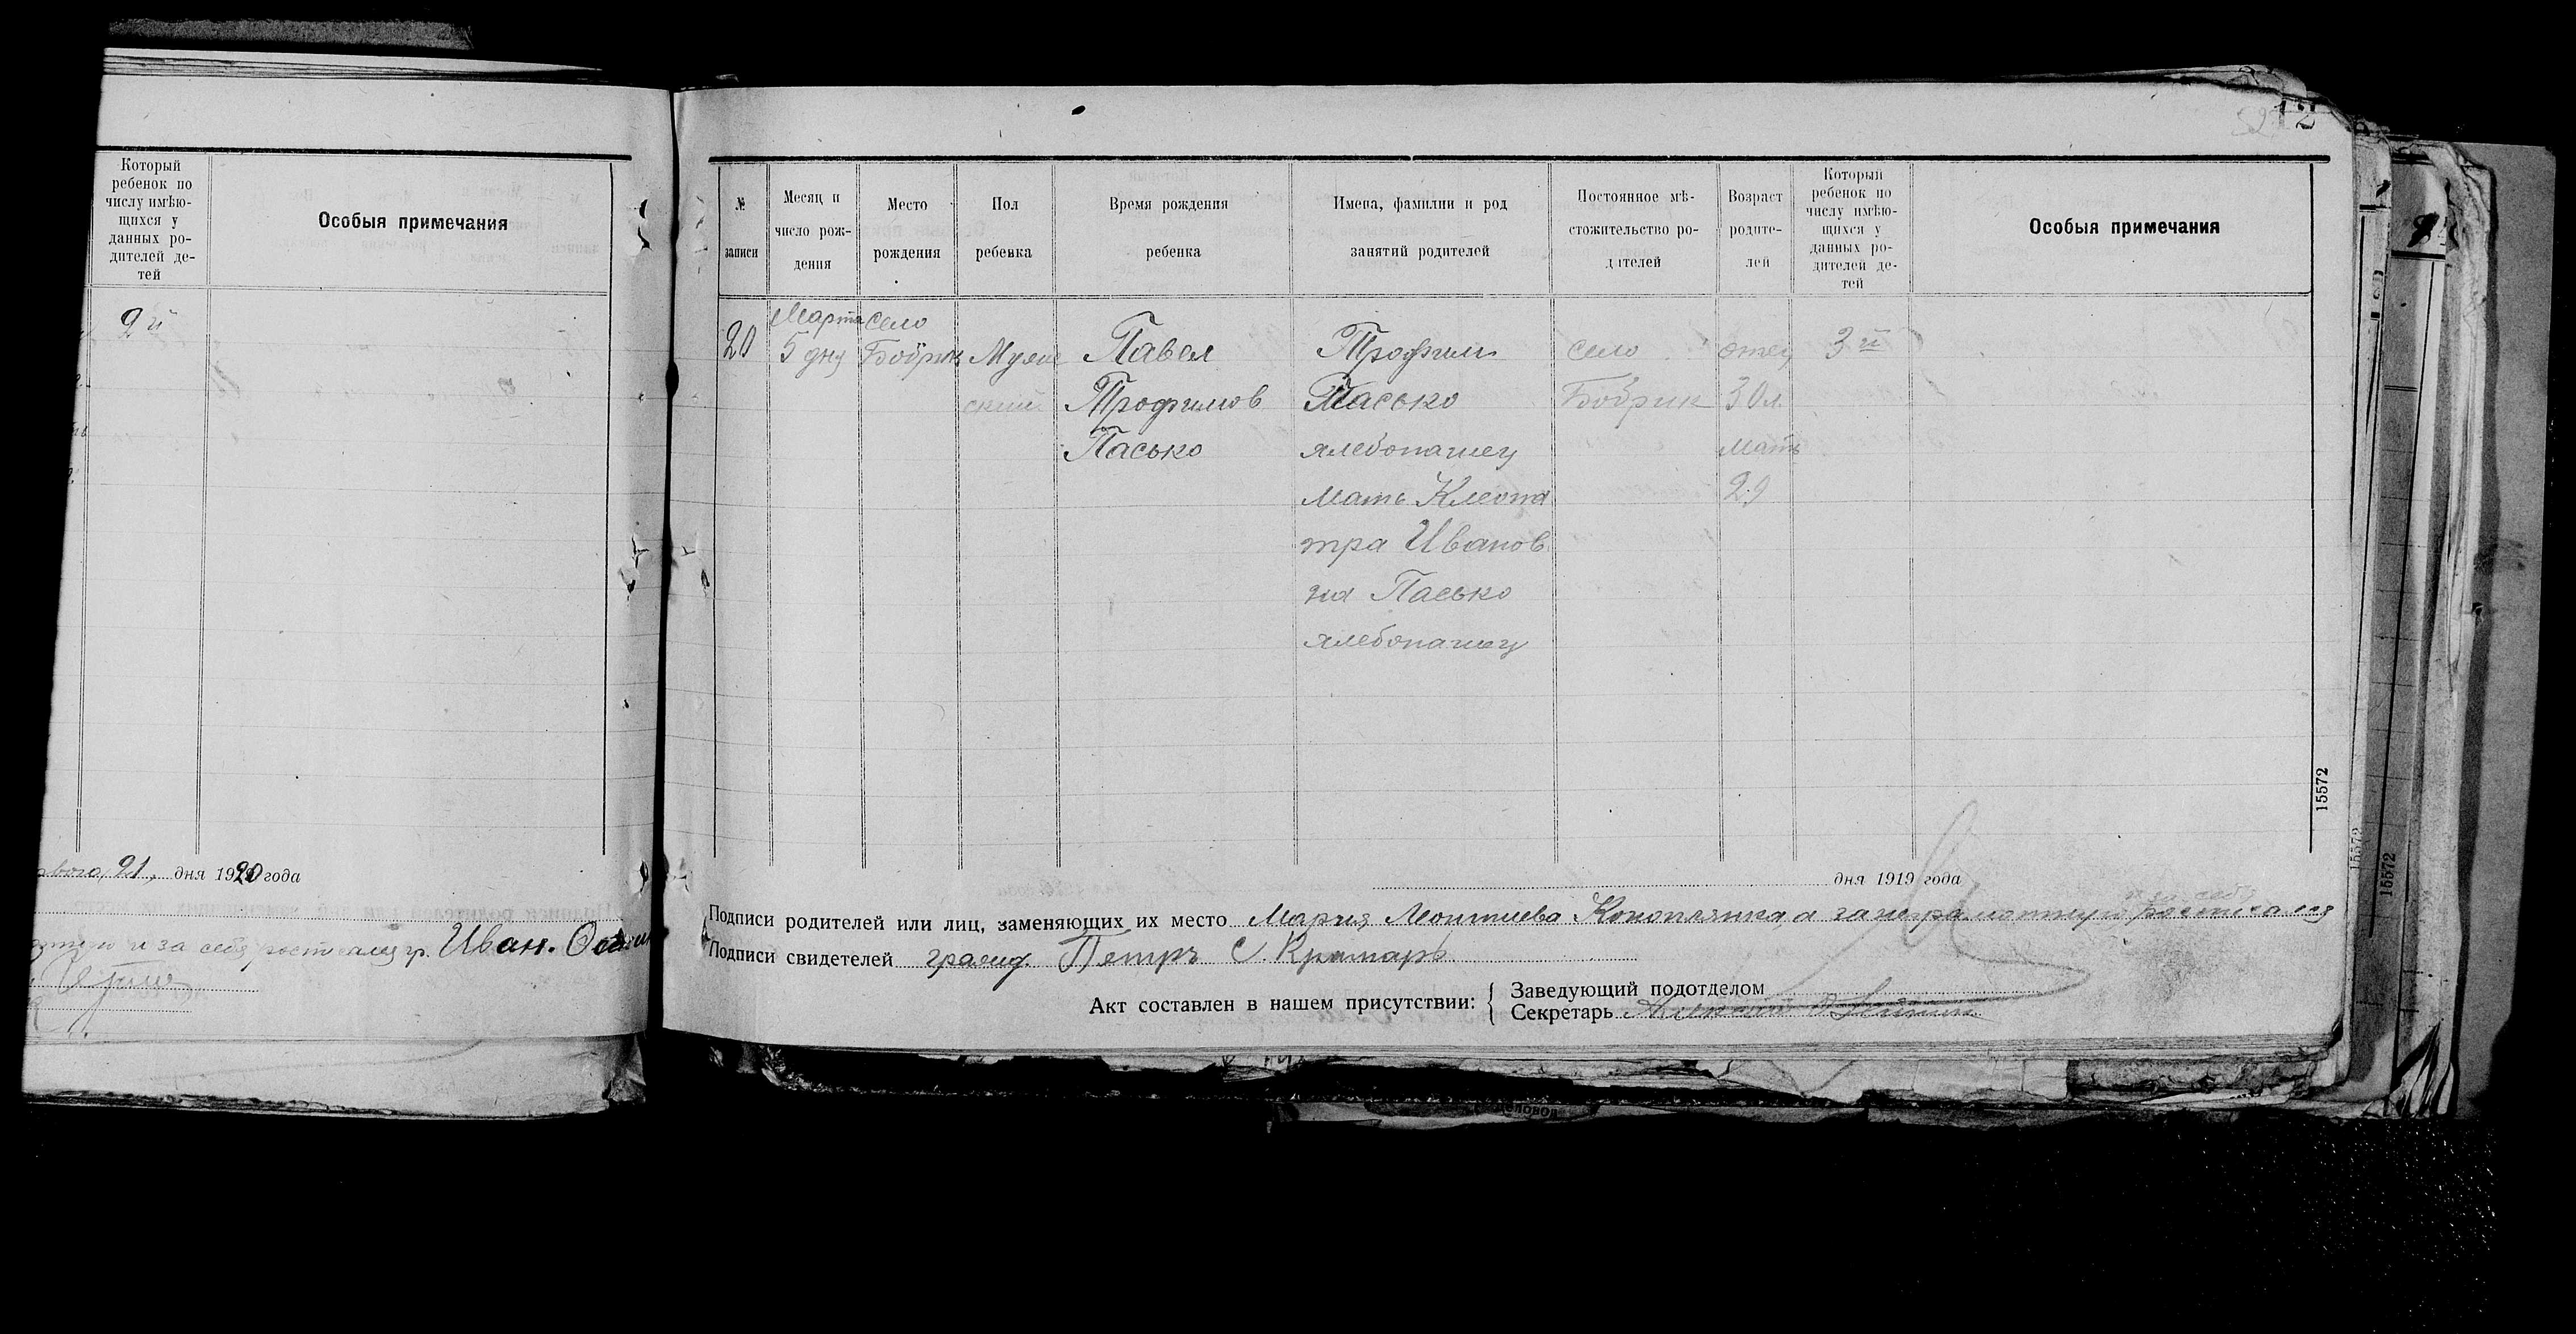 Который
ребенок по
числу имѣю-
щихся у
данных ро-
дителей де-
тей
Особыя примечания
2й
21, дня 1920 года
и за себя гр. Иван.
12
№
записи
Месяц и
число рож-
дения
Место
рождения
Пол
ребенка
Время рождения
ребенка
Имена, фамилии и род
занятий родителей
Постоянное мѣ-
стожительство ро-
дителей
Возраст
родите-
лей
Который
ребенок по
числу имѣю-
щихся у
данных ро-
дителей де-
тей
Особыя примечания
20
Марта
5 дня
село
Бобрик
Муже
ский
Павел
Трофимов
Пасько
Трофим
Пасько
хлебопашец
мать Клеопа
тра Иванов
на Пасько
хлебопашец
село
Бобрик
отец
30 л.
мать
29
3й
15572
15572
15572
дня 1919 года
и за себя
Подписи родителей или лиц, заменяющих их место Мария Леонтиева Конопляика, а за неграмотную
Подписи свидетелей гражд. Петръ С. Крамарь
Акт составлен в нашем присутствии:
Заведующий подотделом
Секретарь